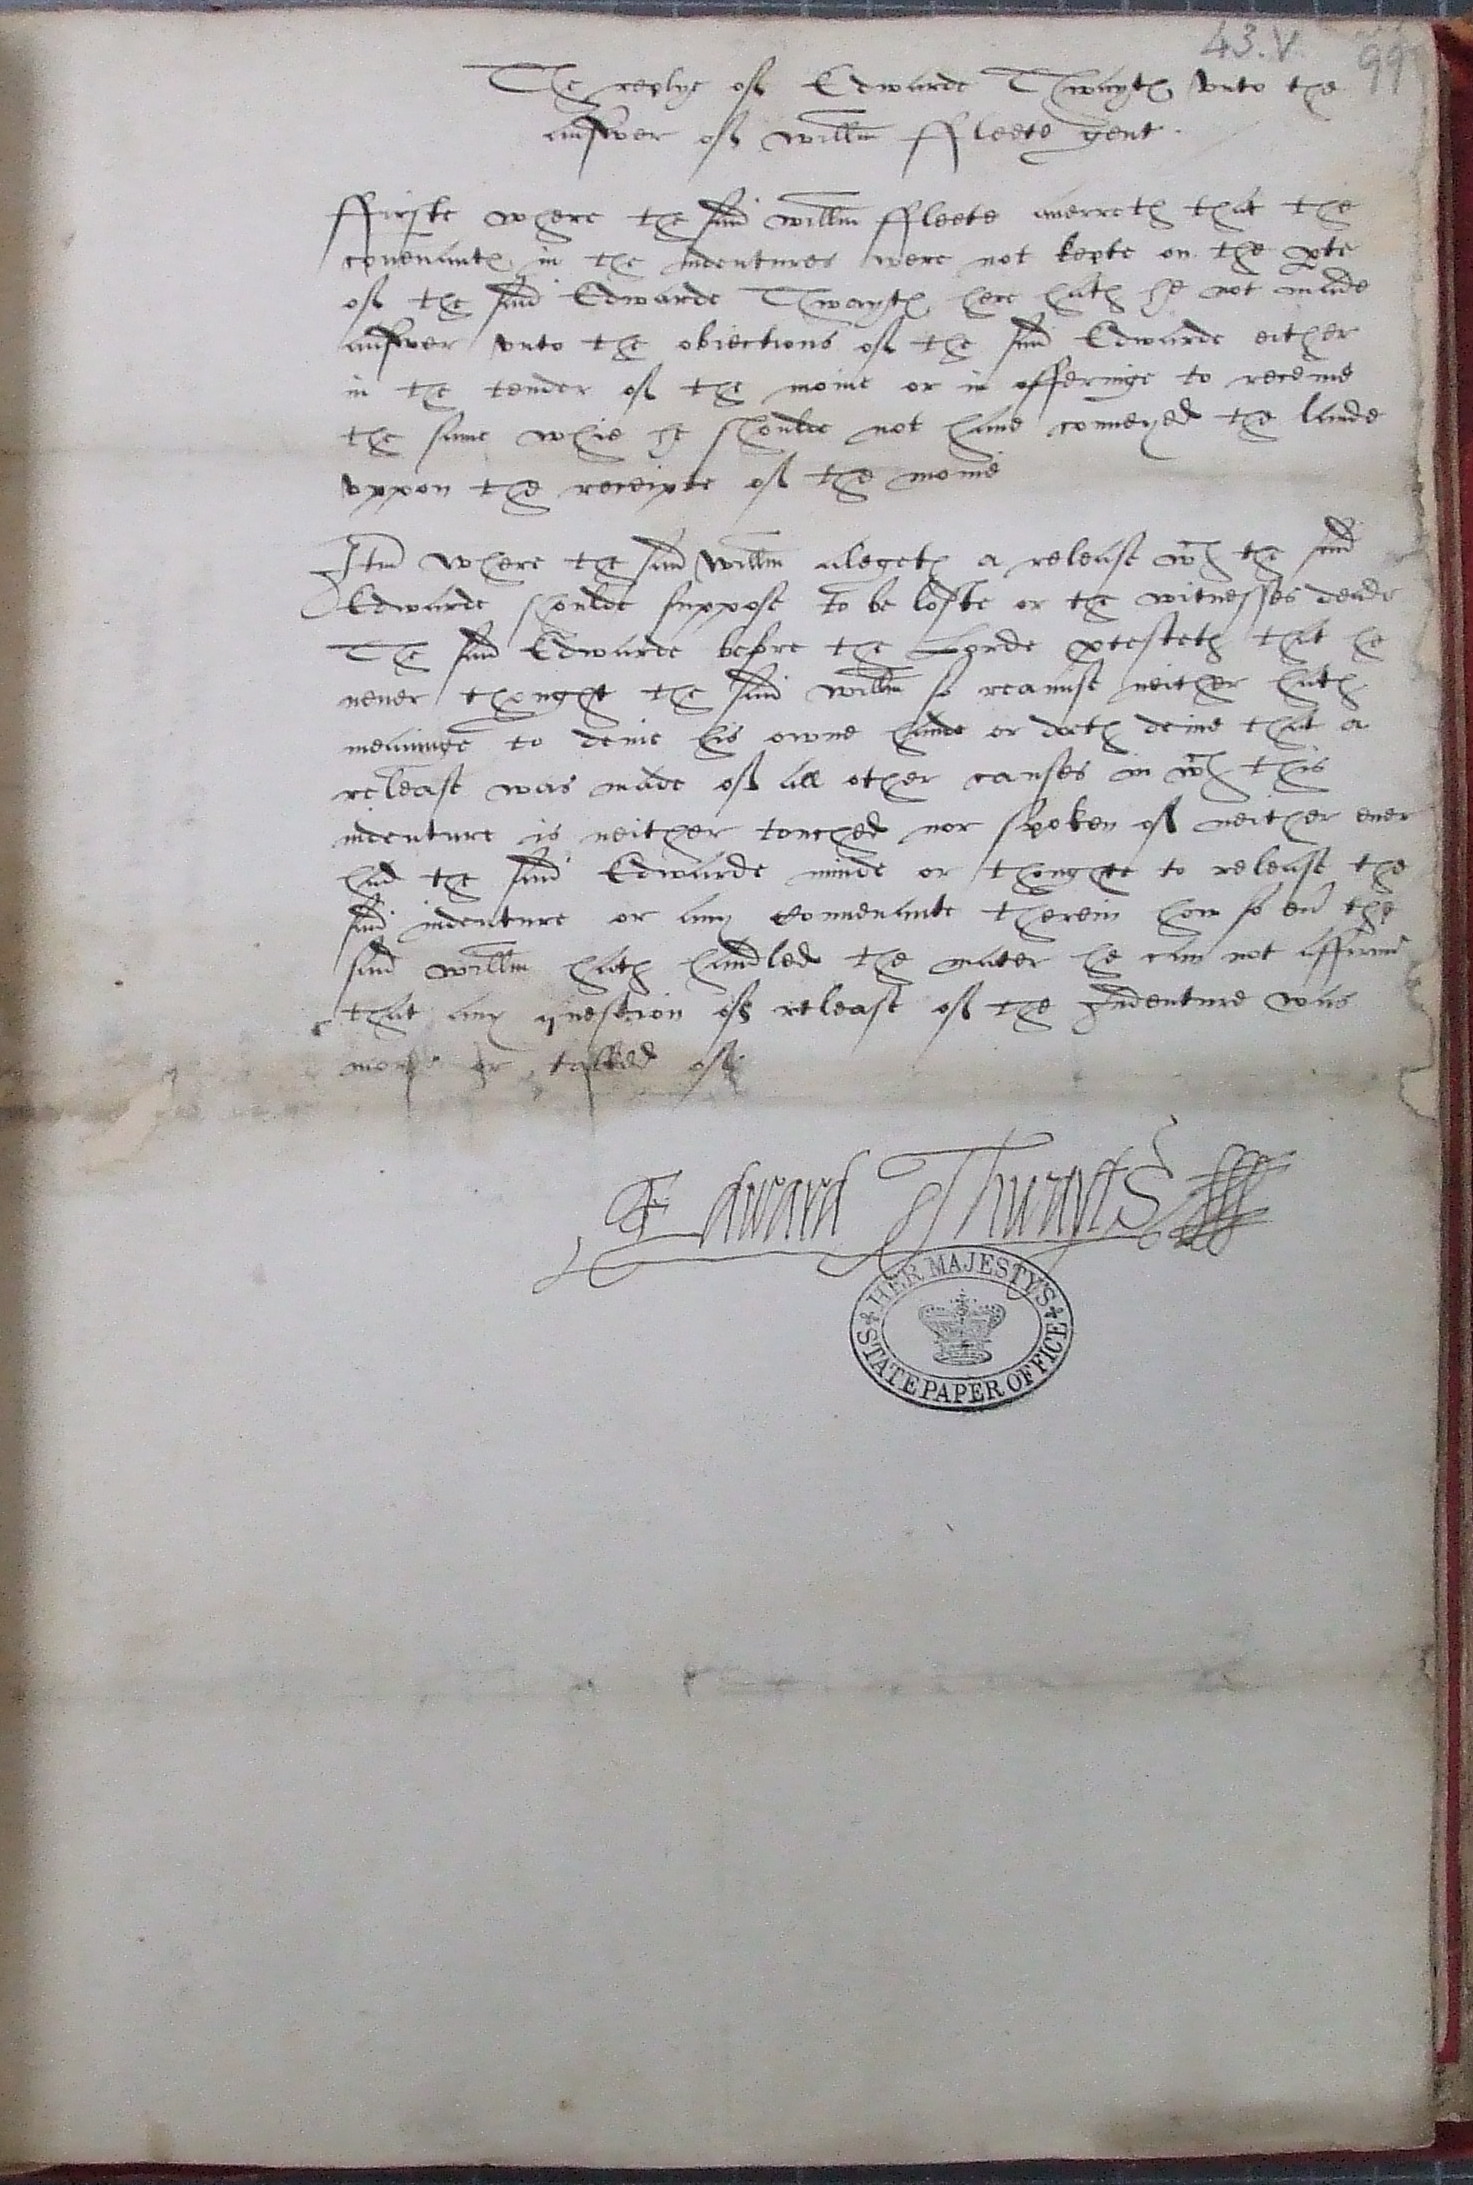 43.V. 99
The replye off Edwarde Thwayts vnto the
answer off willm ffleete gent.
ffirste where the said willm ffleete auerreth that the
couenants in the indentures were not kepte on the pte
off the said Edwarde Thwayts here hath he not made
answer vnto the obiections off the said Edwarde either
in the tender off the monie or in offeringe to receiue
the same whie he shoulde not haue conueyed the lande
vppon the receipte off the monie
Itm where the said willm alegeth a release wch the said
Edwarde shoulde suppose to be loste or the witnesses deade
The said Edwarde before the Lorde ptesteth that he
neuer thoughte the said willm so neither hath
meaninge to denie his owne hande or doth denie that a
release was made off all other causes in wch this
indenture is neither touched nor spoken off neither euer
had the said Edwarde minde or thoughte to release the
said indenture or any conuenante therein how so eu the
said willm hath handled the mater he can not affirme
that any question off release off the Indenture was
or talked off
Edward Thwayts
HER MAJESTY'S
STATE PAPER OFFICE